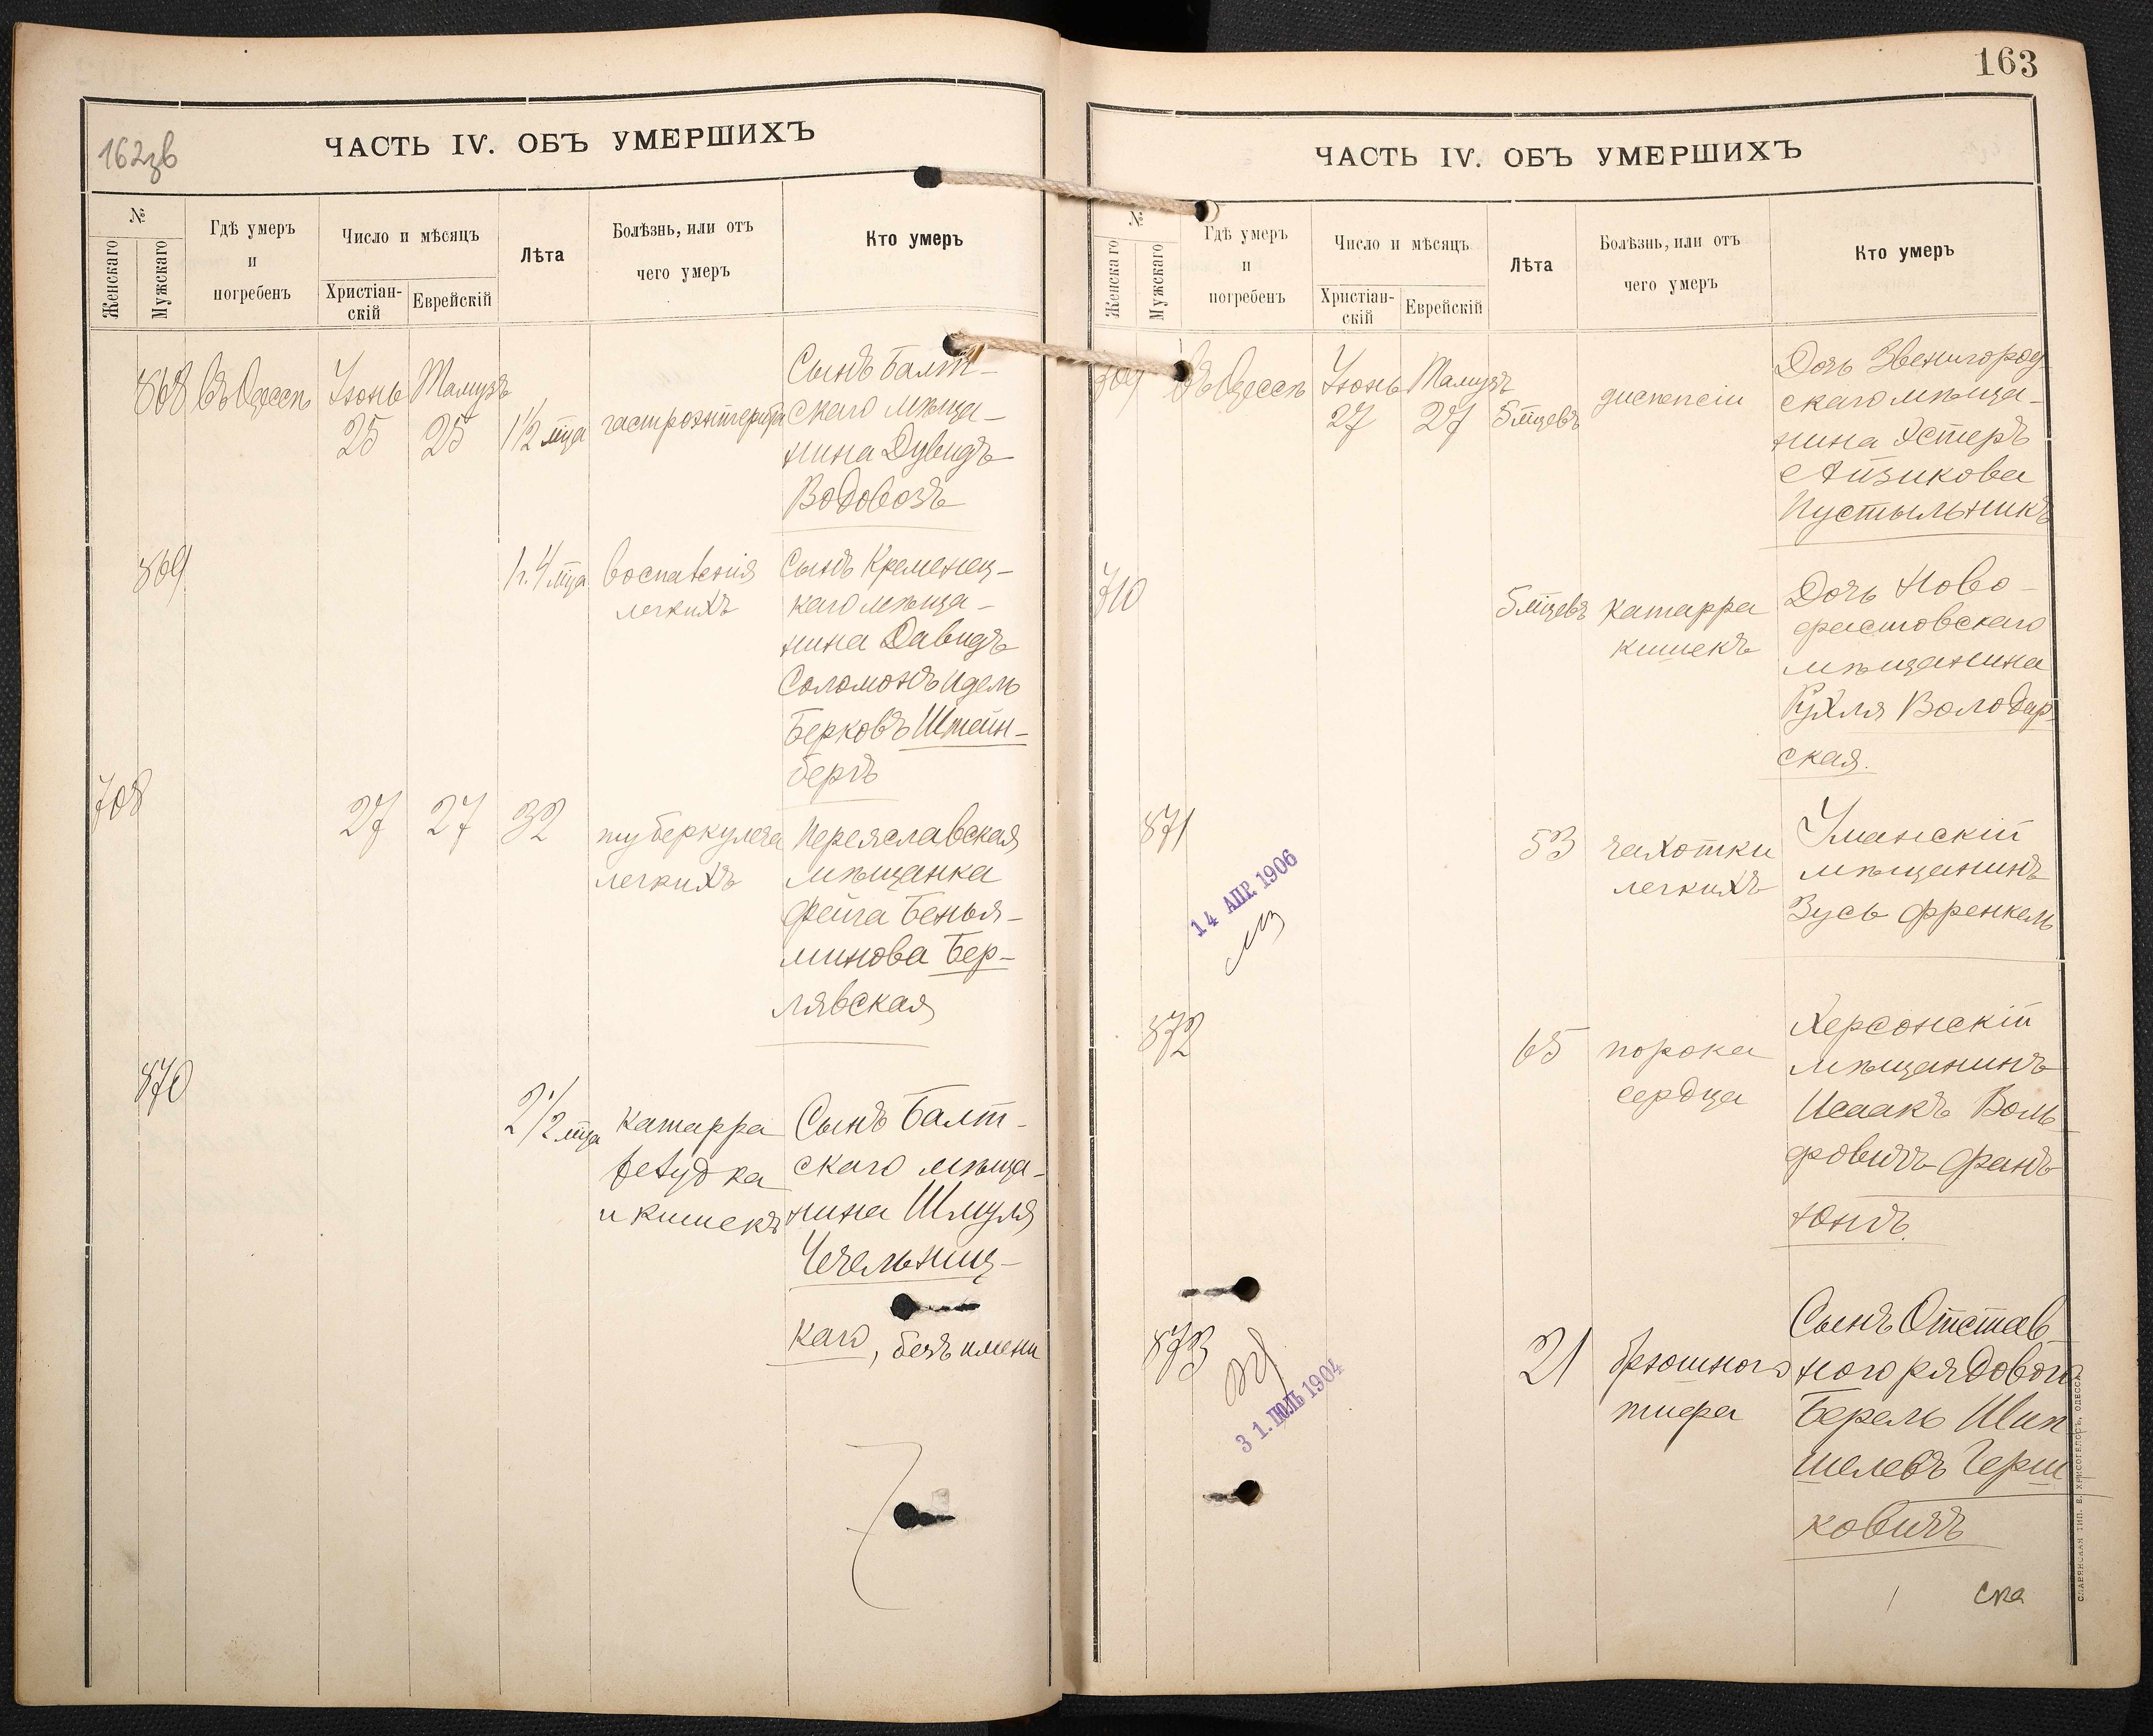 162зв
ЧАСТЬ IV. ОБЪ УМЕРШИХЪ
№
Женскаго
Мужскаго
Гдѣ умеръ
и
погребенъ
Число и мѣсяцъ
Христіан-
скій
Еврейскій
Лѣта
Болѣзнь, или отъ
чего умеръ
Кто умеръ
868 въ Одессѣ Іюнь Тамузъ
25 25 1½ мца гастроэнтерита
Сынъ Балт-
скаго мѣща-
нина Дувидъ
Водовозъ
869 1 г. 4 мца воспаленія
легкихъ
Сынъ Кременец-
каго мѣща-
нина Давидъ
Соломонъ Идель
Берковъ Штейн-
бергъ
708 27 27 32 туберкулеза
легкихъ
Переяславская
мѣщанка
Фейга Бенья-
минова Бер-
лявская
870 2 1/2 мца катарра
желудка
и кишекъ
Сынъ Балт-
скаго мѣща-
нина Шмуля
Чечельниц-
каго, безъ имени
163
ЧАСТЬ IV. ОБЪ УМЕРШИХЪ
№
Женскаго
Мужскаго
Гдѣ умеръ
и
погребенъ
Число и мѣсяцъ
Христіан-
скій
Еврейскій
Лѣта
Болѣзнь, или отъ
чего умеръ
Кто умеръ
709 въ Одессѣ Іюнь Тамузъ
27 27 5 мцевъ диспепсіи
Дочь Звенигород-
скаго мѣща-
нина Эстеръ
Айзикова
Пустыльникъ
710 5 мцевъ катарра
кишекъ
Дочь Ново-
фастовскаго
мѣщанина
Рухля Володар-
ская.
871 53 чахотки
легкихъ
Уманскій
мѣщанинъ
Зусь Френкель
14 АПР. 1906
872 65 порока
сердца
Херсонскій
мѣщанинъ
Исаакъ Воль
фовичъ Фанъ-
Юнгъ.
873 21 брюшного
тифа
Сынъ Отстав-
ного рядового
Берель Шип
шелевъ Герш
ковичъ
31. ІЮЛЬ 1904
СЛАВЯНСКАЯ ТИП. Е. ХРИСОГЕЛОСЪ, ОДЕССА.